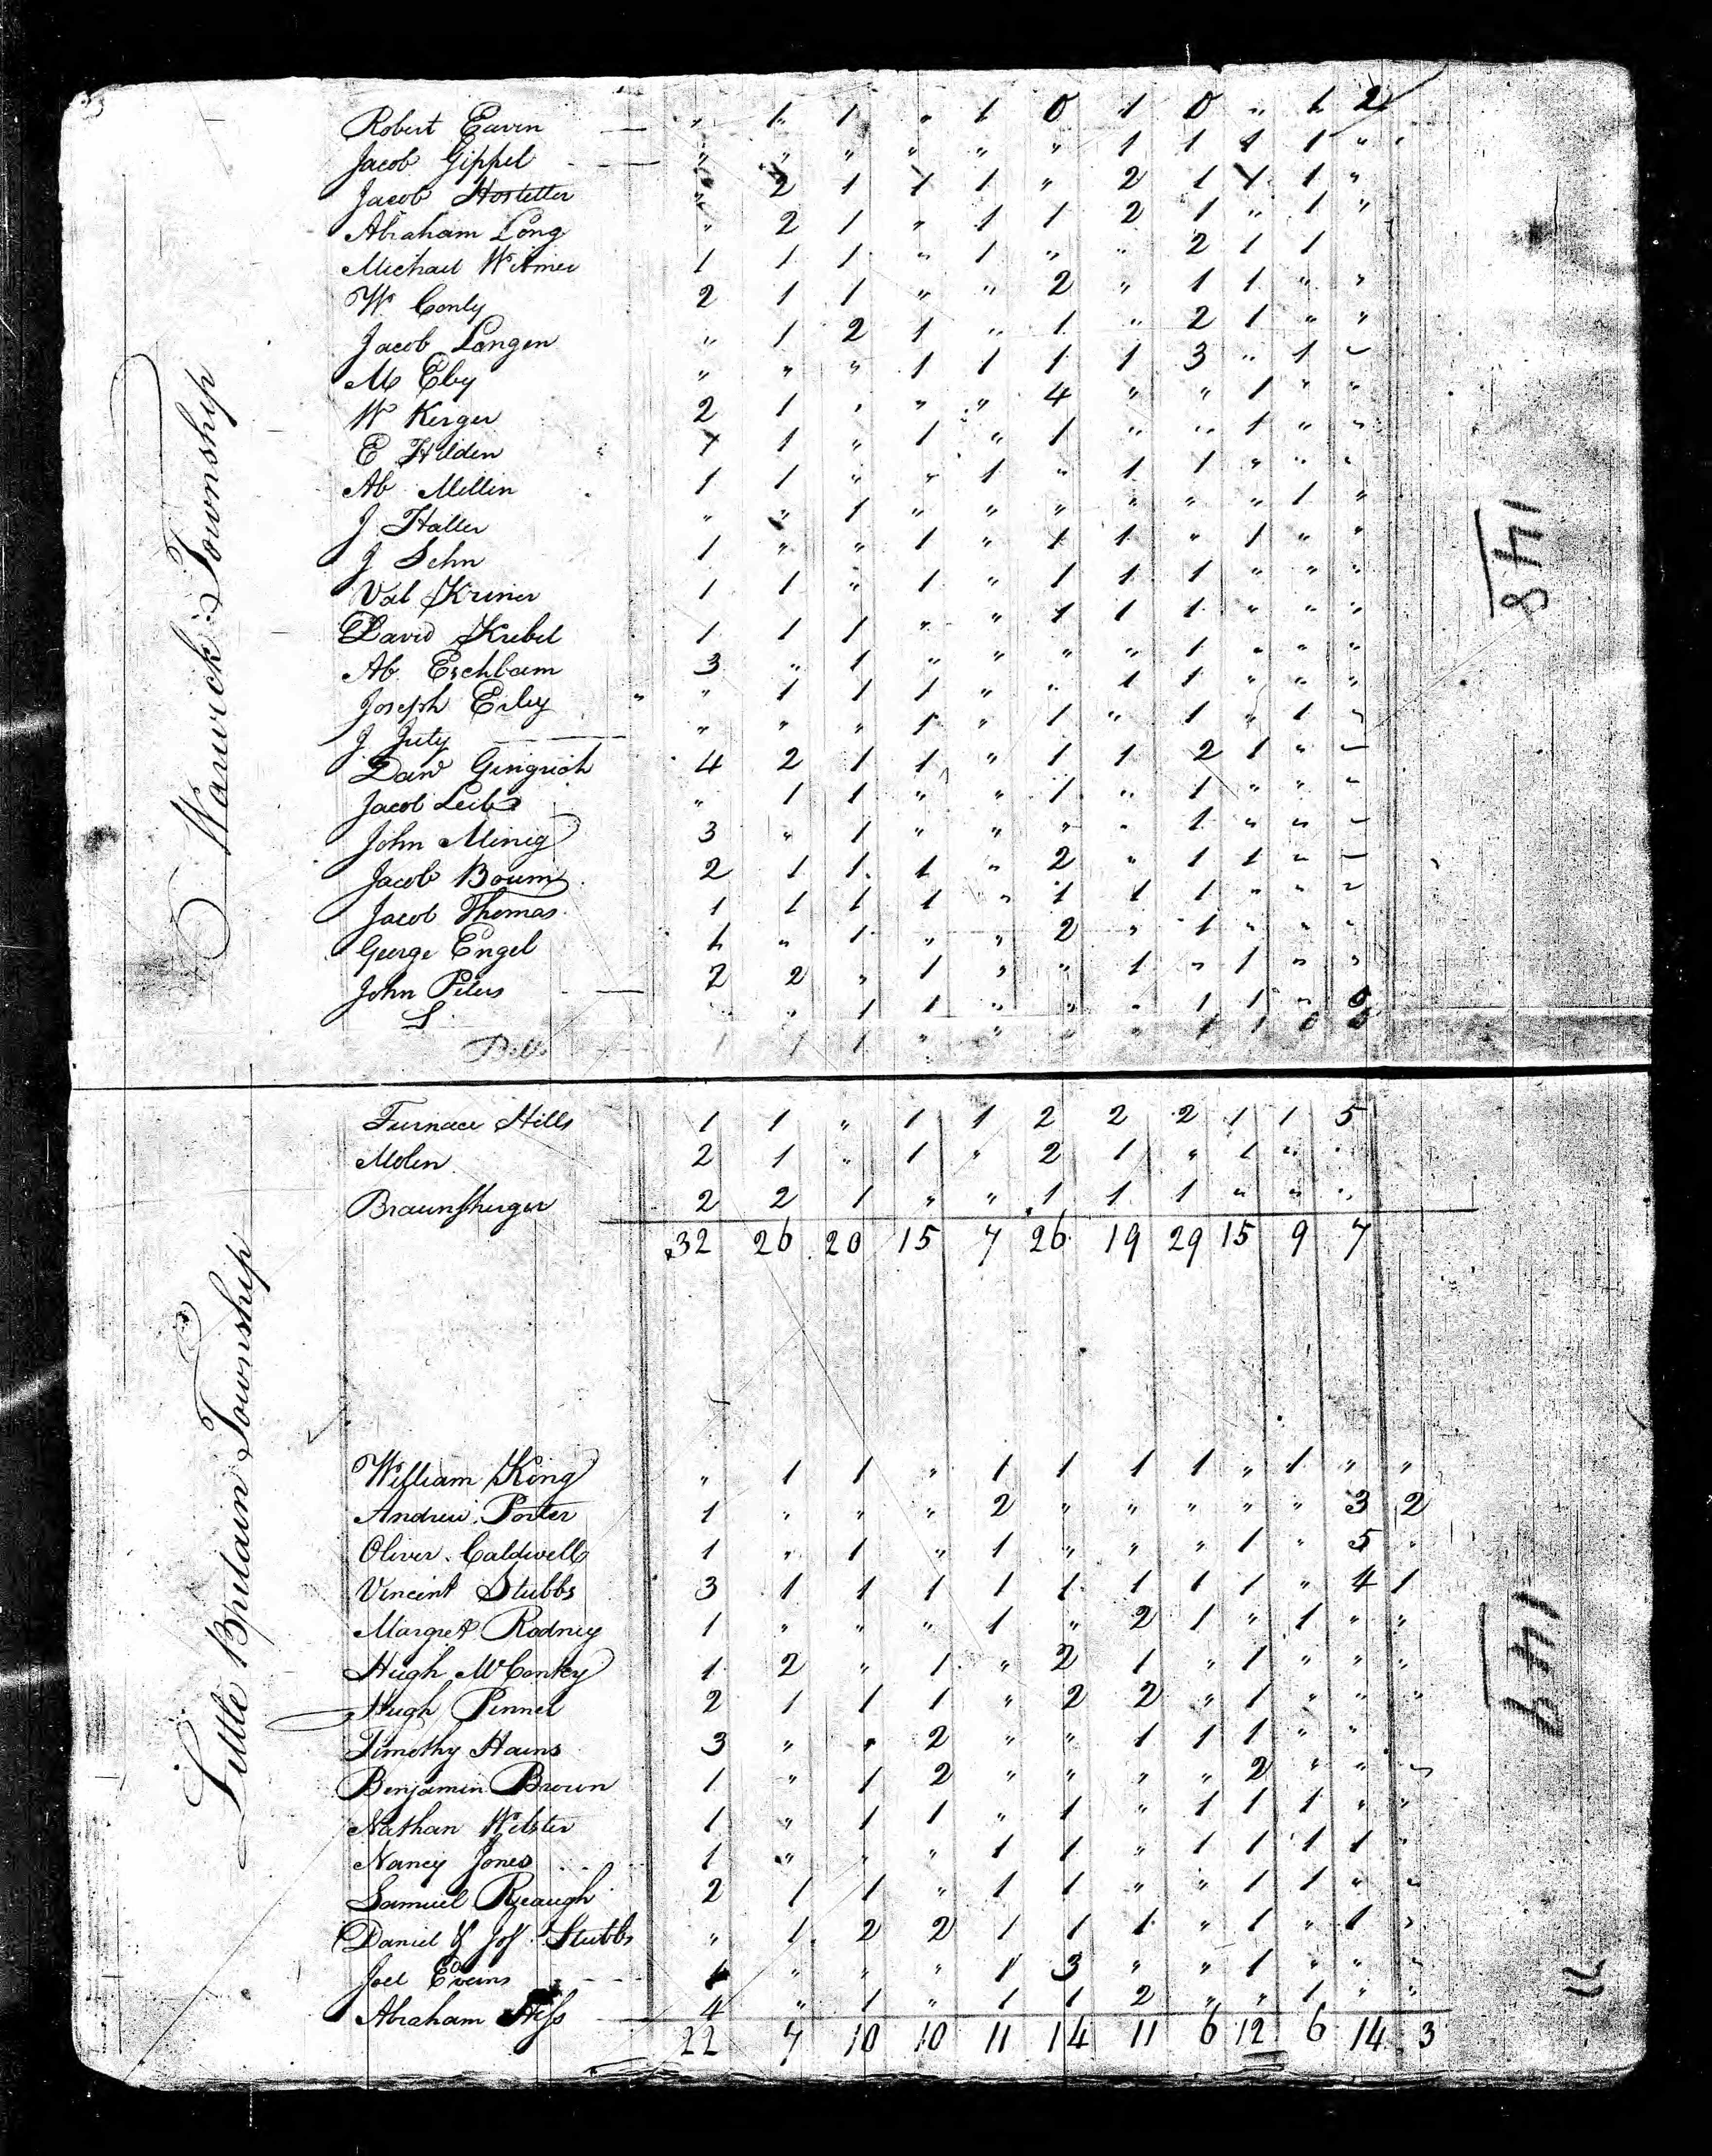 Warwick Township
Robert Eaven — " 1 1 " 1 0 1 0 " 1 2
Jacob Gippel — " " " " " " 1 1 1 1 "
Jacob Hostetter " 2 1 1 1 " 2 1 1 1 "
Abraham Long " 2 1 " 1 1 2 1 " 1 "
Michael Witmer 1 1 1 " 1 " " 2 1 1
W. Conly 2 1 1 " " 2 " 1 1 " "
Jacob Langen " 1 2 1 " 1 " 2 1 " "
M Eby " " " 1 1 1 1 3 " 1 "
W Kerger 2 1 " " " 4 " " 1 " "
E Hilden 1 1 " 1 " 1 " " 1 " "
Ab Millin 1 1 " " 1 " 1 1 " " "
J Haller " " 1 " " " " " " 1 "
J Sehn 1 " " 1 " 1 1 " 1 " "
Val Kriner 1 1 " 1 " 1 1 1 " " "
David Krebel 1 1 1 " " 1 1 1 " " "
Ab Eschbam 3 " 1 " " " " 1 " " "
Joseph Erby " 1 1 1 " " 1 1 " " "
J Juty — " " " 1 " 1 " 1 " 1 "
Davd Gingrich 4 2 1 1 " 1 1 2 1 " "
Jacob Leib " 1 1 " " 1 " 1 " " "
John Minig 3 " 1 " " " " 1 " " "
Jacob Boum 2 1 1 1 " 2 " 1 1 " "
Jacob Thomas 1 1 1 1 " 1 1 1 " " "
George Engel 1 " 1 " " 2 " 1 " " "
John Peters — 2 2 " 1 " " 1 " 1 " "
S " 1 1 " " " 1 1 "
1 1 1 " " " " 1 1 0 0
148
Furnace Hills 1 1 " 1 1 2 2 2 1 1 5
Molen 2 1 " 1 " 2 1 " 1 " "
Braunsherger 2 2 1 " " 1 1 1 " " "
32 26 20 15 7 26 19 29 15 9 7
Little Britain Township
William King " 1 1 " 1 1 1 1 " 1 " "
Andrew Porter 1 " " " 2 " " " " " 3 2
Oliver Caldwell 1 " 1 " 1 " " " 1 " 5 "
Vincent Stubbs 3 1 1 1 1 1 1 1 1 " 4 1
Margret Rodney 1 " " " 1 " 2 1 " 1 " "
Hugh McConkey 1 2 " 1 " 2 1 " 1 " " "
Hugh Pennel 2 1 1 1 " 2 2 " 1 " " "
Timothy Hains 3 " " 2 " " 1 1 1 " "
Benjamin Brown 1 " 1 2 " " " " 2 " " "
Nathan Webster 1 " 1 1 " 1 " 1 1 1 " "
Nancy Jones 1 " " " 1 1 " 1 1 1 1 "
Samuel Reaugh 2 1 1 " 1 1 " " 1 1 " "
Daniel & Jos Stubbs " 1 2 2 1 1 1 " 1 " 1 "
Joel Evans 1 " " " 1 3 " " 1 " " "
Abraham Hess — 4 " 1 " 1 1 2 " " 1 " "
22 7 10 10 11 14 11 6 12 6 14 3